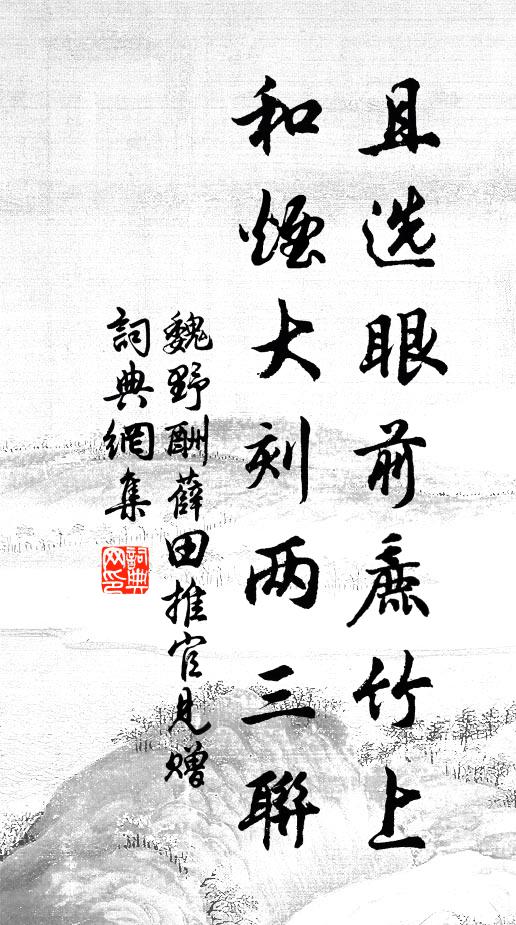 且选眼前麁竹上
和煙大刻两三聯
魏野酬薛田推官見贈
詞典網集
詞典网印